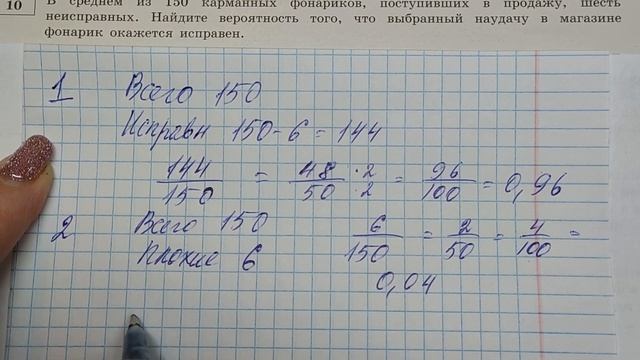 10
В среднем из 150 карманных фонариков, поступивших в продажу, шесть
неисправных. Найдите вероятность того, что выбранный наудачу в магазине
фонарик окажется исправен.
1 Всего 150
Исправн 150-6=144
144/150 = 48·2/50·2 = 96/100 = 0,96
2 Всего 150 6/150 = 2/50 = 4/100 =
Плохие 6
0,04